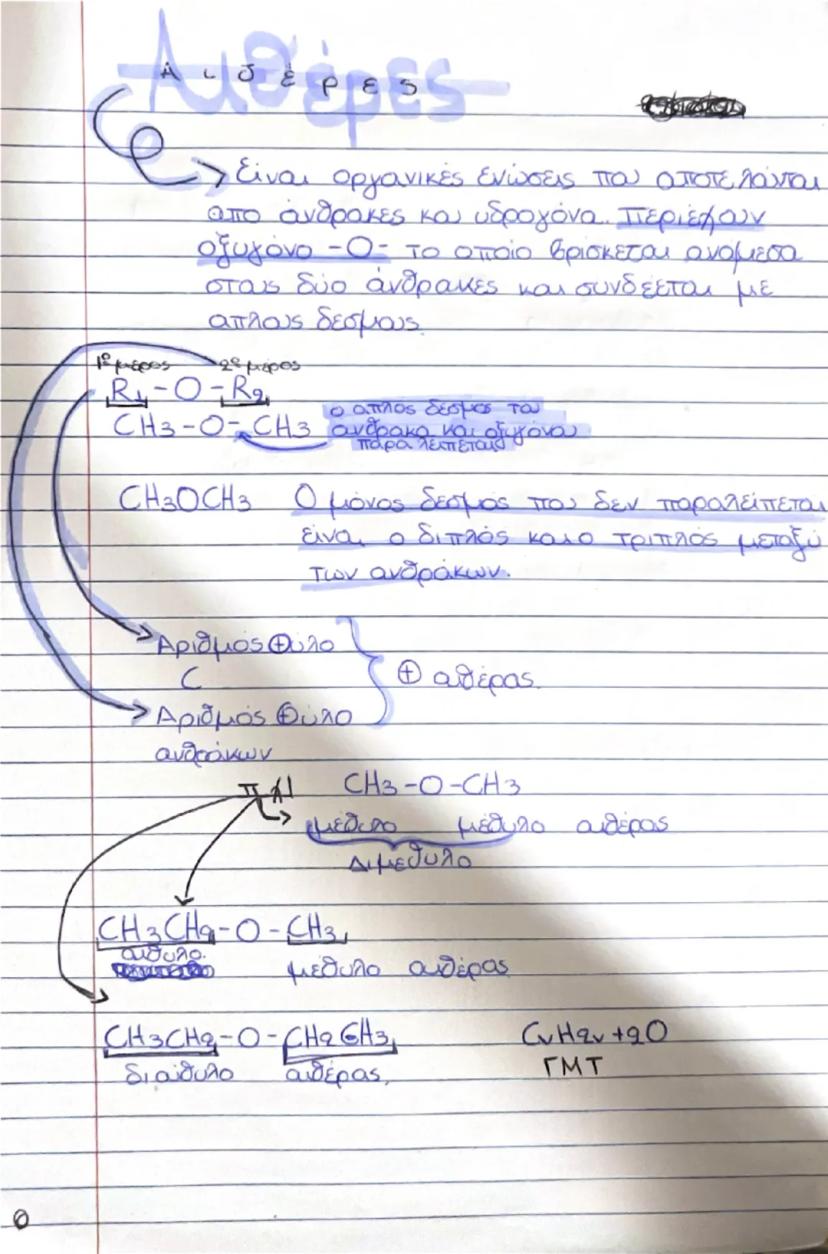 Αιθέρες
Αιθέρες
Είναι οργανικές ενώσεις που αποτελούνται
απο άνθρακες και υδρογόνα. Περιέχουν
οξυγόνο -Ο- το οποίο βρίσκεται ανάμεσα
στους δύο άνθρακες και συνδέεται με
απλούς δεσμούς.
1ο μέρος 2ο μέρος
R1 - O - R2
ο απλός δεσμός του
CH3 - O - CH3 άνθρακα και οξυγόνου
παραλείπεται
CH3OCH3 Ο μόνος δεσμός που δεν παραλείπεται
είναι ο διπλός και ο τριπλός μεταξύ
των ανθράκων.
Αριθμός ⊕ύλο
C ⊕ αιθέρας.
Αριθμός ⊕ύλο
ανθράκων
π.χ1 CH3 - O - CH3
μέθυλο μέθυλο αιθέρας
Διμεθυλο
CH3CH2 - O - CH3
αιθυλο.
μέθυλο αιθέρας
CH3CH2 - O - CH2CH3 CνH2ν+2O
διαιθυλο αιθέρας. ΓΜΤ